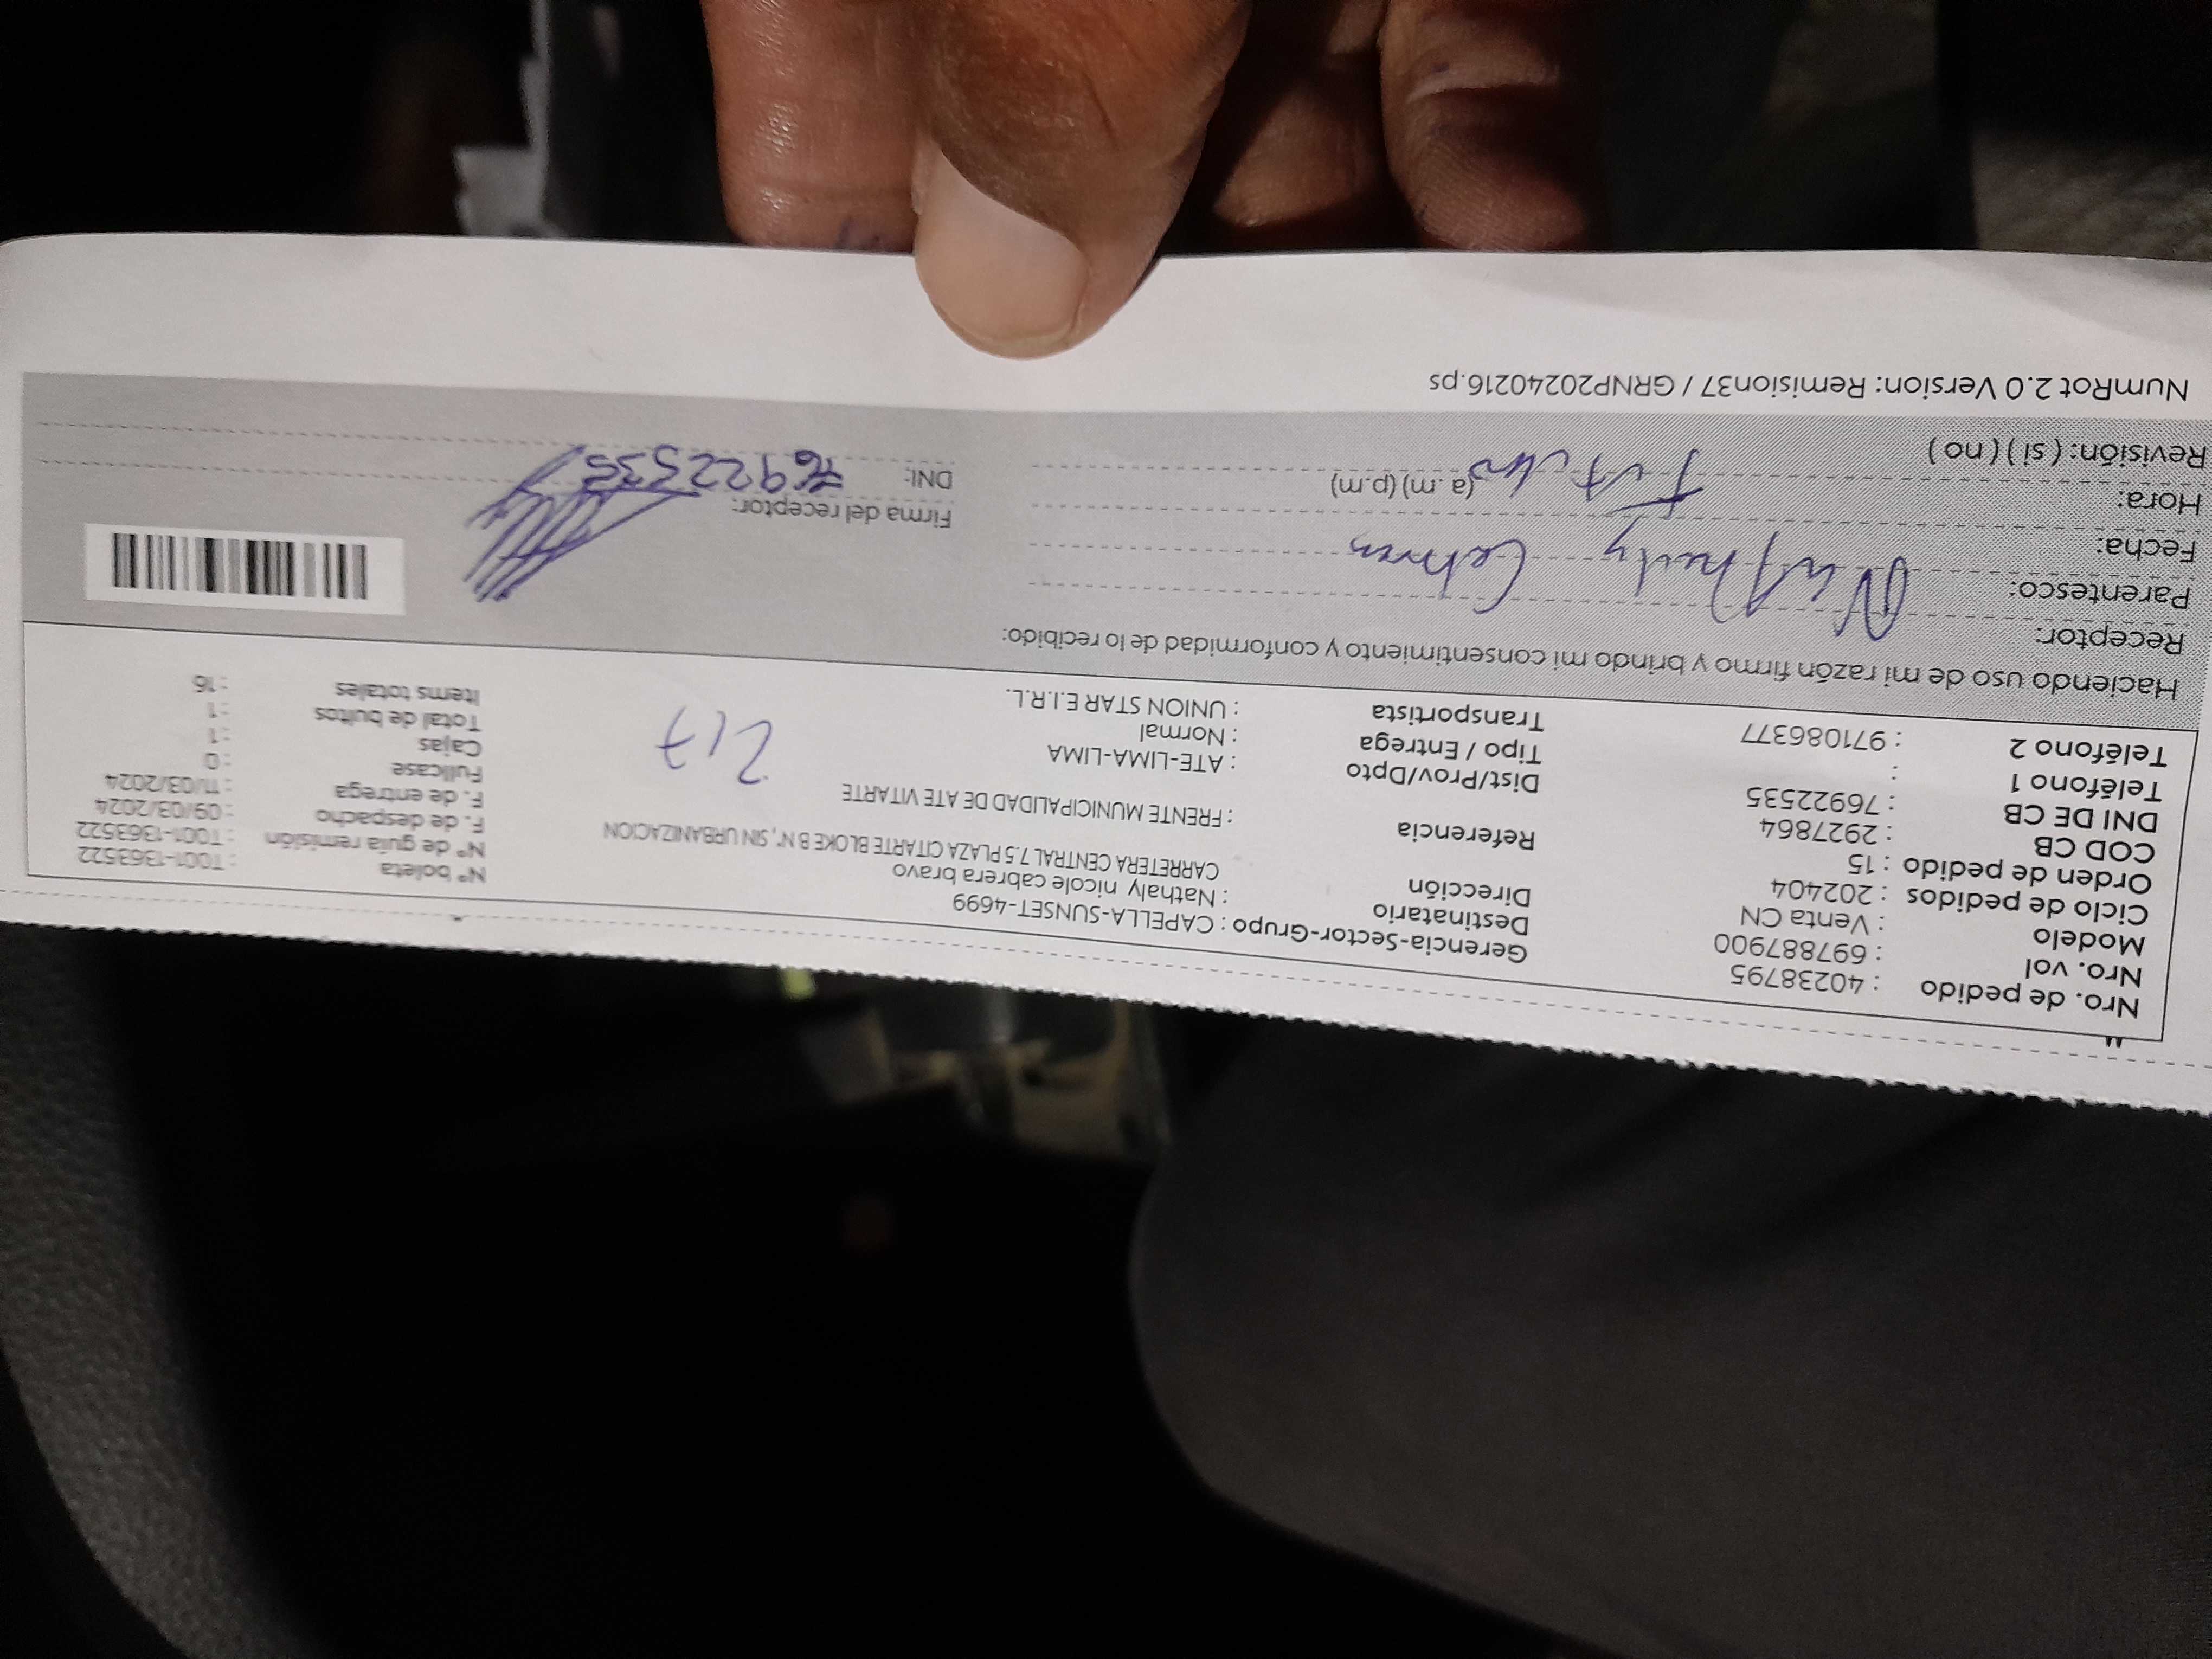 Nro. de pedido : 40238795
Nro. vol : 697887900
Modelo : Venta CN
Ciclo de pedidos : 202404
Orden de pedido : 15
COD CB : 2927864
DNI DE CB : 76922535
Teléfono 1 :
Teléfono 2 : 971086377
Gerencia-Sector-Grupo : CAPELLA-SUNSET-4699
Destinatario : Nathaly nicole cabrera bravo
Dirección CARRETERA CENTRAL 7.5 PLAZA CITARTE BLOKE B N°, SIN URBANIZACION
Referencia : FRENTE MUNICIPALIDAD DE ATE VITARTE
Dist/Prov/Dpto : ATE-LIMA-LIMA
Tipo / Entrega : Normal
Transportista : UNION STAR E.I.R.L.
N° boleta : T001-1363522
N° de guía remisión : T001-1363522
F. de despacho : 09/03/2024
F. de entrega : 11/03/2024
Fullcase : 0
Cajas : 1
Total de bultos : 1
Items totales : 16
217
Haciendo uso de mi razón firmo y brindo mi consentimiento y conformidad de lo recibido:
Receptor:
Parentesco:
Fecha:
Hora: (a.m) (p.m)
Revisión: ( si ) ( no )
Firma del receptor:
DNI: 76922535
NumRot 2.0 Version: Remision37 / GRNP20240216.ps